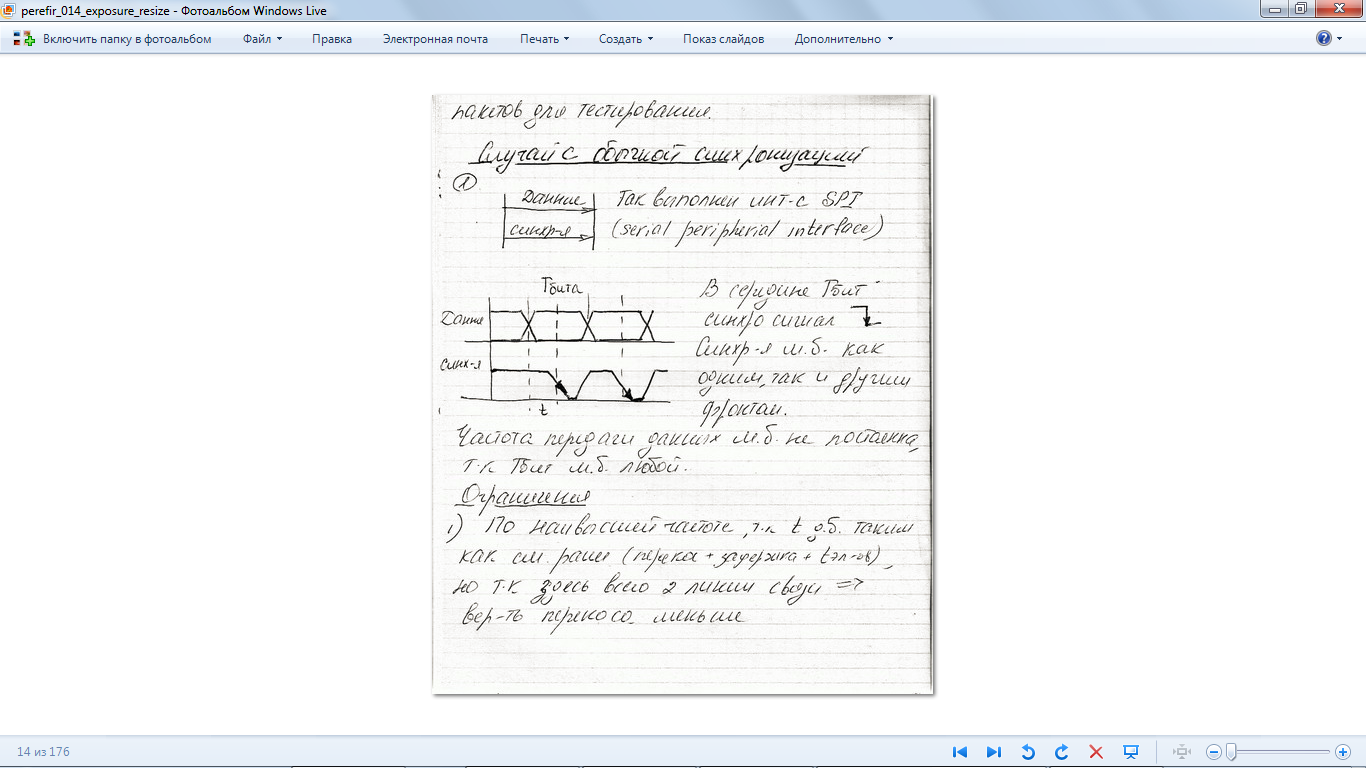 perefir_014_exposure_resize - Фотоальбом Windows Live
Включить папку в фотоальбом Файл Правка Электронная почта Печать Создать Показ слайдов Дополнительно
пакетов для тестирования.
Случай с обычной синхронизацией
1
Данные
синхр-я
Так выполнен инт-с SPI
(serial peripherial interface)
Tбита
Данные
синх-я
t
В середине Tбит
синхро сигнал
Синхр-я м.б. как
одним, так и другим
фронтам.
Частота передачи данных м.б. не постоянна,
т.к Tбит м.б. любой.
Ограничения
1) По наивысшей частоте, т.к t д.б. таким
как см. ранее (перекос + задержка + tэл-ов),
но т.к здесь всего 2 линии связи =>
вер-ть перекоса меньше
14 из 176